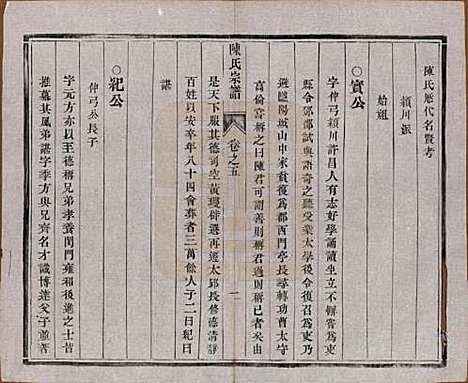 陳氏歷代名賢考
潁川派
始祖
○實公
字仲弓潁川許昌人有志好學誦讀坐立不輟
縣令鄧邵試與語奇之聽受業太學後令復召爲吏乃
避隱陽城山中家貧復爲郡西門亭長尋轉功曹太守
高倫嘗稱之曰陳君可謂善則稱君過則稱己者矣由
陳氏宗譜
卷之五
一
是天下服其德司空黃瓊辟選再遷太邱長修德清靜
百姓以安卒年八十四會葬者三萬餘人子二曰紀曰
諶
○紀公
仲弓公長子
字元方亦以至德稱兄弟孝養閨門雍和後進之士皆
推慕其風弟諶字季方與兄齊名才識博達父子並著